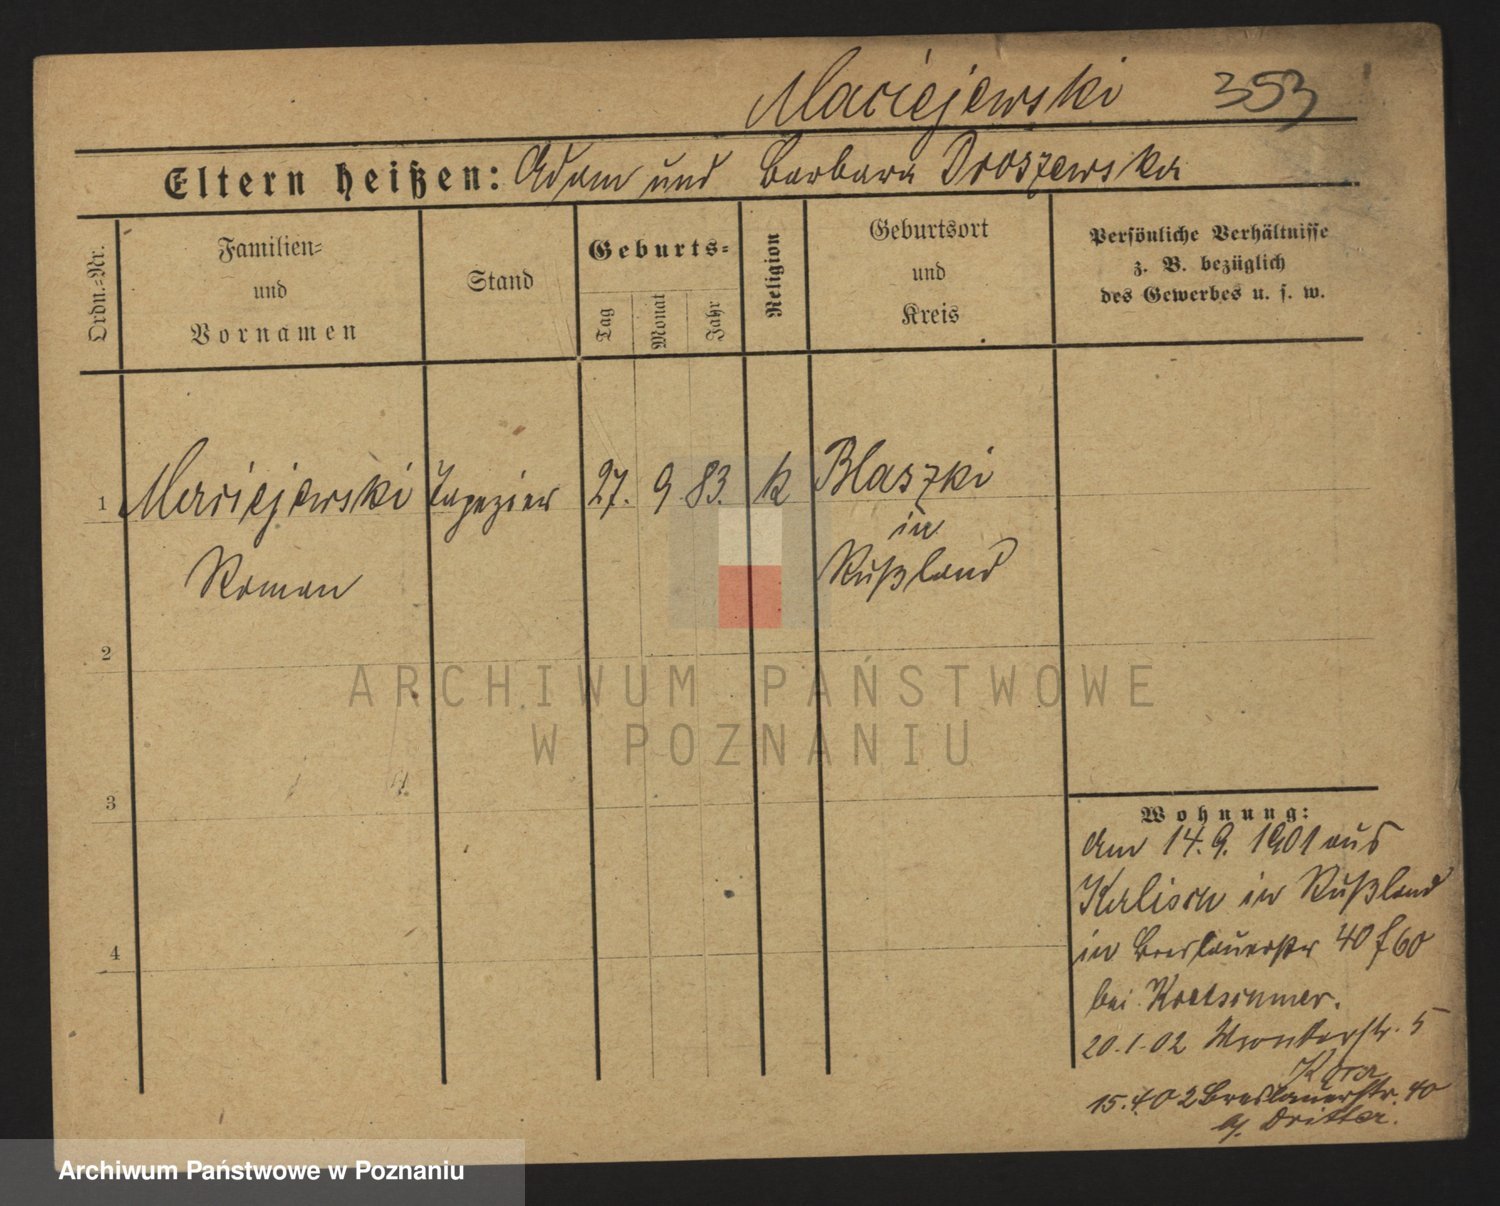 Maciejewski 353
Eltern heißen: Adam und Barbara Droszewska
Ordn.-Nr.
Familien-
und
Vornamen
Stand
Geburts-
Tag
Monat
Jahr
Religion
Geburtsort
und
Kreis
Persönliche Verhältnisse
z. B. bezüglich
des Gewerbes u. s. w.
1 Maciejewski Tapezier 27. 9 83. k Blaszki
in
Roman Rußland
2
3
4
Wohnung:
Am 14.9.1901 aus
Kalisch in Rußland
in Breslauerstr 40
bei
20.1.02 5
15.4.02 Breslauerstr. 40
b. Dritter.
ARCHIWUM PAŃSTWOWE
W POZNANIU
Archiwum Państwowe w Poznaniu